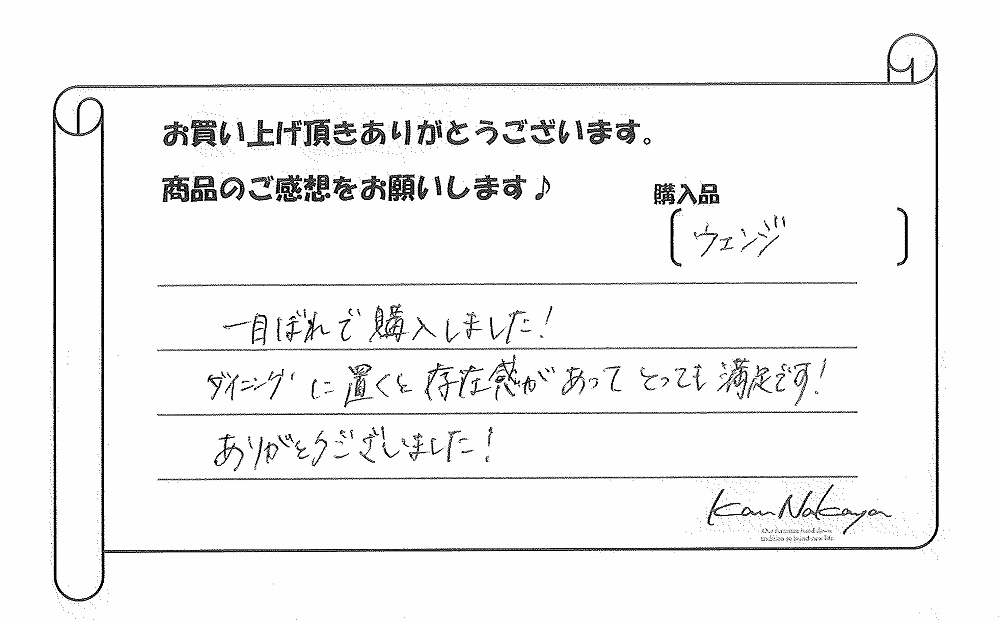 お買い上げ頂きありがとうございます。
商品のご感想をお願いします♪
購入品
〔ウェンジ〕
一目ぼれで購入しました!
ダイニングに置くと存在感があってとっても満足です!
ありがとうございました!
Kan Nakaya
Our furniture hand down
tradition so brand-new life